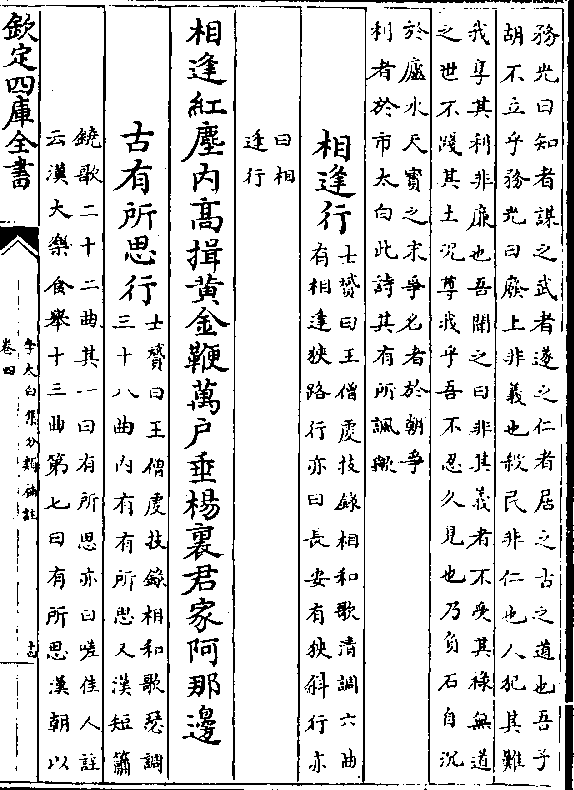 務光曰知者謀之武者遂之仁者居之古之道也吾子
胡不立乎務光曰廢上非義也殺民非仁也人犯其難
我享其利非廉也吾聞之曰非其義者不受其祿無道
之世不踐其土況尊我乎吾不忍久見也乃負石自沉
於廬水天寶之末爭名者於朝爭
利者於市太白此詩其有所諷歟
相逢行
士贇曰王僧虔技錄相和歌清調六曲
有相逢狹路行亦曰長安有狹斜行亦
曰相
逢行
相逢紅塵内高揖黄金鞭萬户垂楊裏君家阿那邊
古有所思行
士贇曰王僧虔技錄相和歌瑟調
三十八曲内有有所思又漢短簫
鐃歌二十二曲其一曰有所思亦曰嗟佳人註
云漢大樂食舉十三曲第七曰有所思漢朝以
欽定四庫全書
李太白集分類補註
卷四